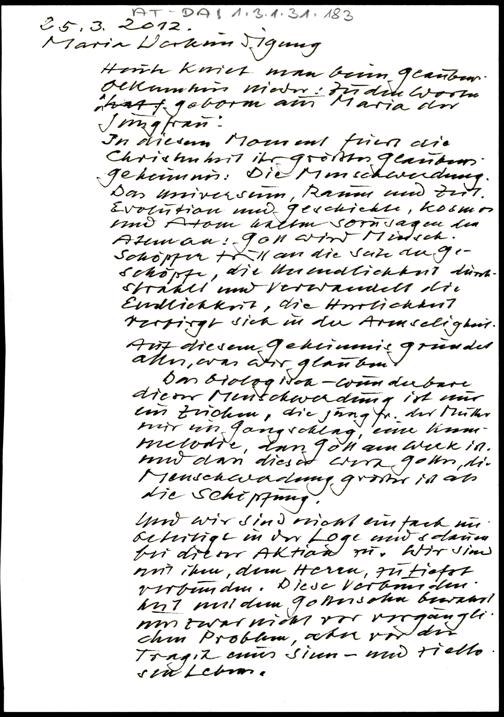 AT-DAI 1.3.1.31.183
25.3.2012.
Maria Verkündigung
Heute kniet man beim Glaubens-
bekenntnis nieder: zu den Worten
hat geboren aus Maria der
Jungfrau:
In diesem Moment feiert die
Christenheit ihr größtes Glaubens-
geheimnis: Die Menschwerdung.
Das Universum, Raum und Zeit,
Evolution und Geschichte, Kosmos
und Atom halten sozusagen den
Atem an: Gott wird Mensch.
Schöpfer tritt an die Seite der Ge-
schöpfe, die Unendlichkeit durch-
strahlt und verwandelt die
Endlichkeit, die Herrlichkeit
verbirgt sich in der Armseligkeit.
Auf diesem Geheimnis gründet
alles, was wir glauben.
Das biologisch-wunderbare
dieser Menschwerdung ist nur
ein Zeichen, die Jungfr. der Mutter
nur ein Gongschlag, eine
melodie, dass Gott am Werk ist.
und dass dieses Werk Gottes, die
Menschwerdung größer ist als
die Schöpfung.
Und wir sind nicht einfach un-
beteiligte in der Loge und schauen
bei dieser Aktion zu. Wir sind
mit ihm, dem Herrn, zutiefst
verbunden. Diese Verbunden-
heit mit dem Gottessohn bewahrt
uns zwar nicht vor vergängli-
chen Problem, aber vor der
Tragik eines sinn- und ziello-
sen Lebens.